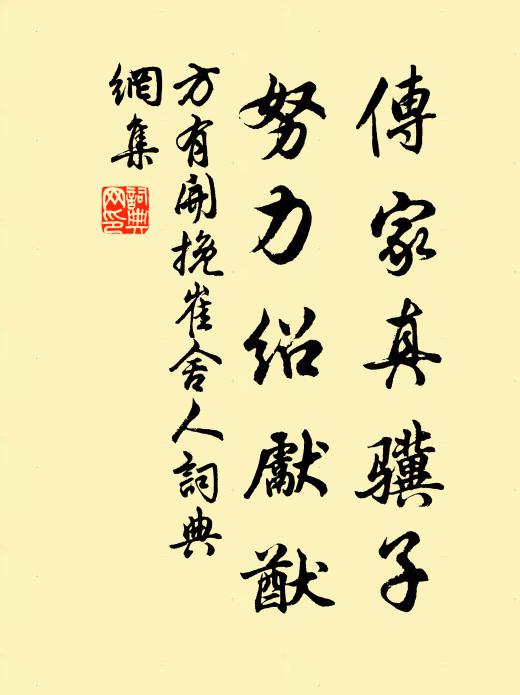 傳家真驥子
努力紹獻猷
方有開挽崔舍人詞典
網集
詞典
网印